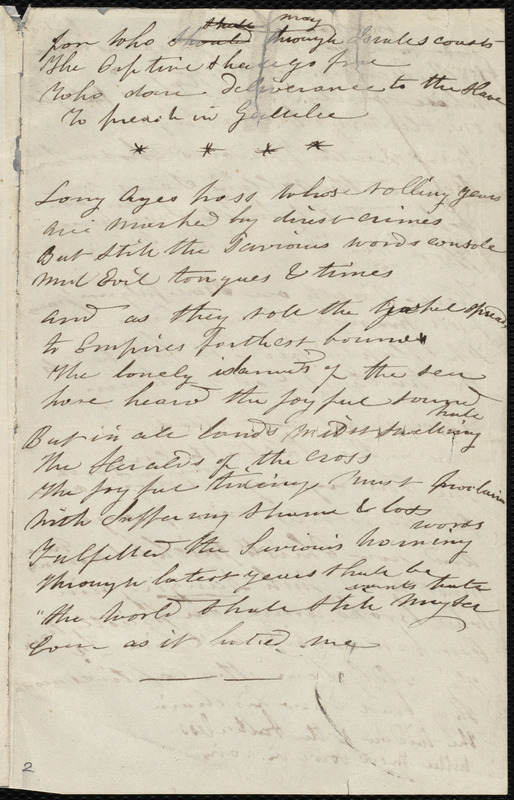 shall may
for who should through Israels coasts
The Captive shall go free
Who dare deliverance to the slave
To preach in Gallilee
* * * *
Long Ages pass whose rolling years
are marked by direst crimes
But still the Saviours words console
mid Evil tongues & times
and as they roll the Gospel spreads
to Empires farthest bound
The lonely islands of the sea
have heard the joyful sound
But in all lands midst swelling hate
The Heralds of the Cross
The joyful tidings must proclaim
With suffering shame & loss
words
Fulfilled the Saviours warning
Through latest years shall be
"The World shall still
Even as it hated me
2